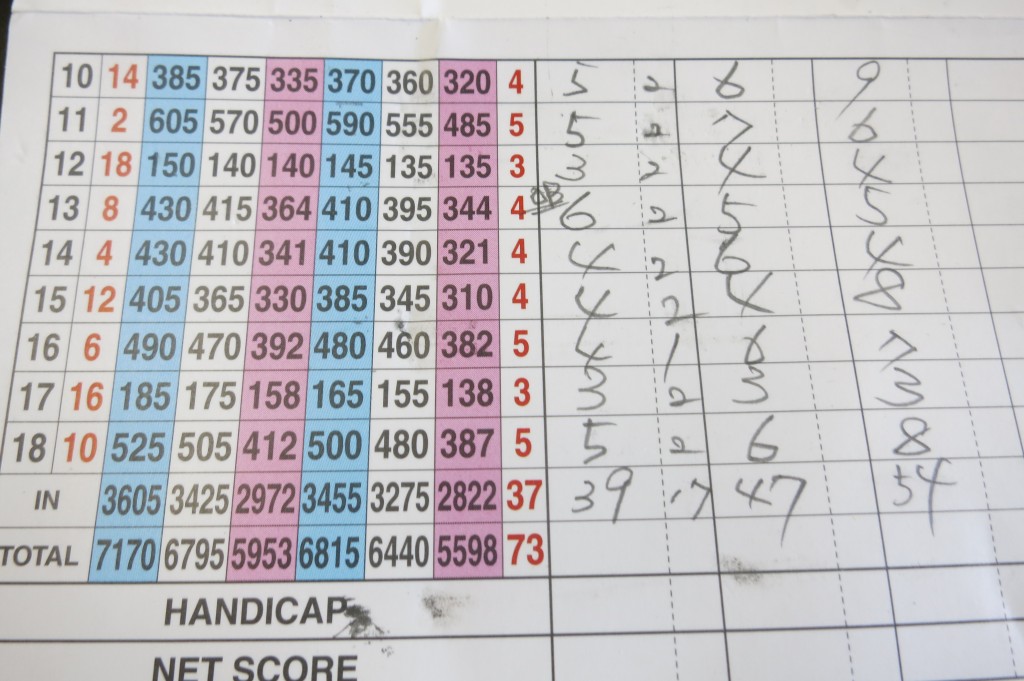 10 14 385 375 335 370 360 320 4 5 2 6 9
11 2 605 570 500 590 555 485 5 5 2 7 6
12 18 150 140 140 145 135 135 3 3 2 4 4
13 8 430 415 364 410 395 344 4 OB 6 2 5 5
14 4 430 410 341 410 390 321 4 4 2 6 4
15 12 405 365 330 385 345 310 4 4 2 4 8
16 6 490 470 392 480 460 382 5 4 1 6 7
17 16 185 175 158 165 155 138 3 3 2 3 3
18 10 525 505 412 500 480 387 5 5 2 6 8
IN 3605 3425 2972 3455 3275 2822 37 39 17 47 54
TOTAL 7170 6795 5953 6815 6440 5598 73
HANDICAP
NET SCORE